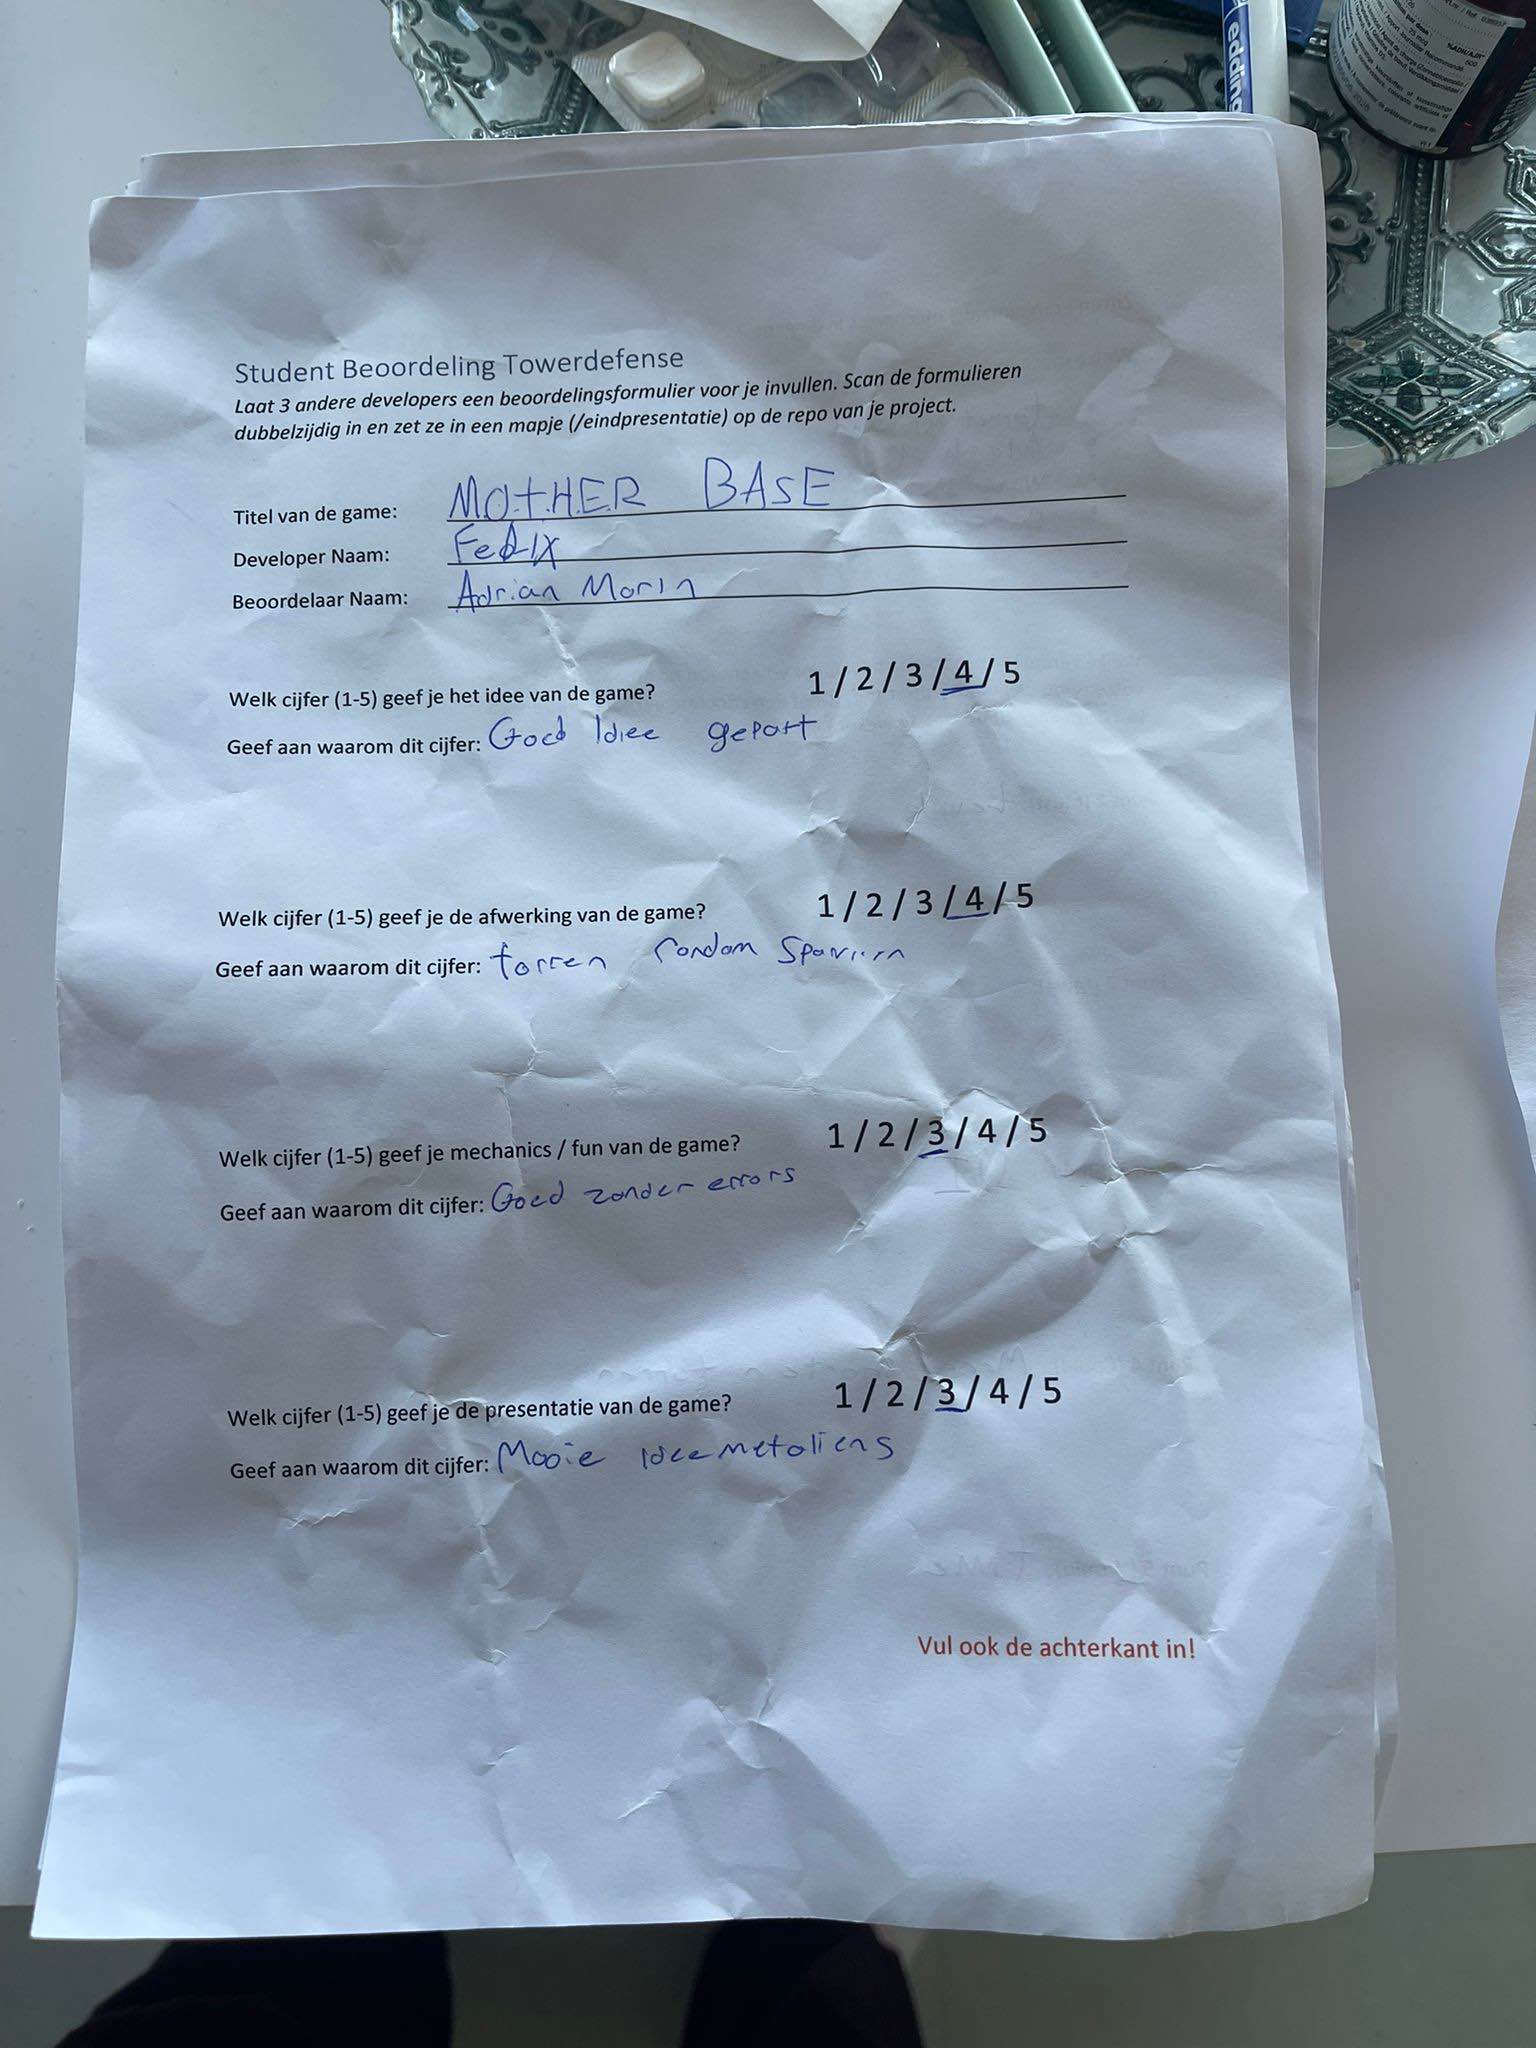 edding
Student Beoordeling Towerdefense
Laat 3 andere developers een beoordelingsformulier voor je invullen. Scan de formulieren
dubbelzijdig in en zet ze in een mapje (/eindpresentatie) op de repo van je project.
Titel van de game: M.O.T.H.E.R BASE
Developer Naam:
Beoordelaar Naam: Adrian Morin
Welk cijfer (1-5) geef je het idee van de game? 1 / 2 / 3 / 4 / 5
Geef aan waarom dit cijfer: Goed Idiee gepast
Welk cijfer (1-5) geef je de afwerking van de game? 1 / 2 / 3 / 4 / 5
Geef aan waarom dit cijfer: torren random
Welk cijfer (1-5) geef je mechanics / fun van de game? 1 / 2 / 3 / 4 / 5
Geef aan waarom dit cijfer: Goed zonder errors
Welk cijfer (1-5) geef je de presentatie van de game? 1 / 2 / 3 / 4 / 5
Geef aan waarom dit cijfer: Mooie Idee met aliens
Vul ook de achterkant in!